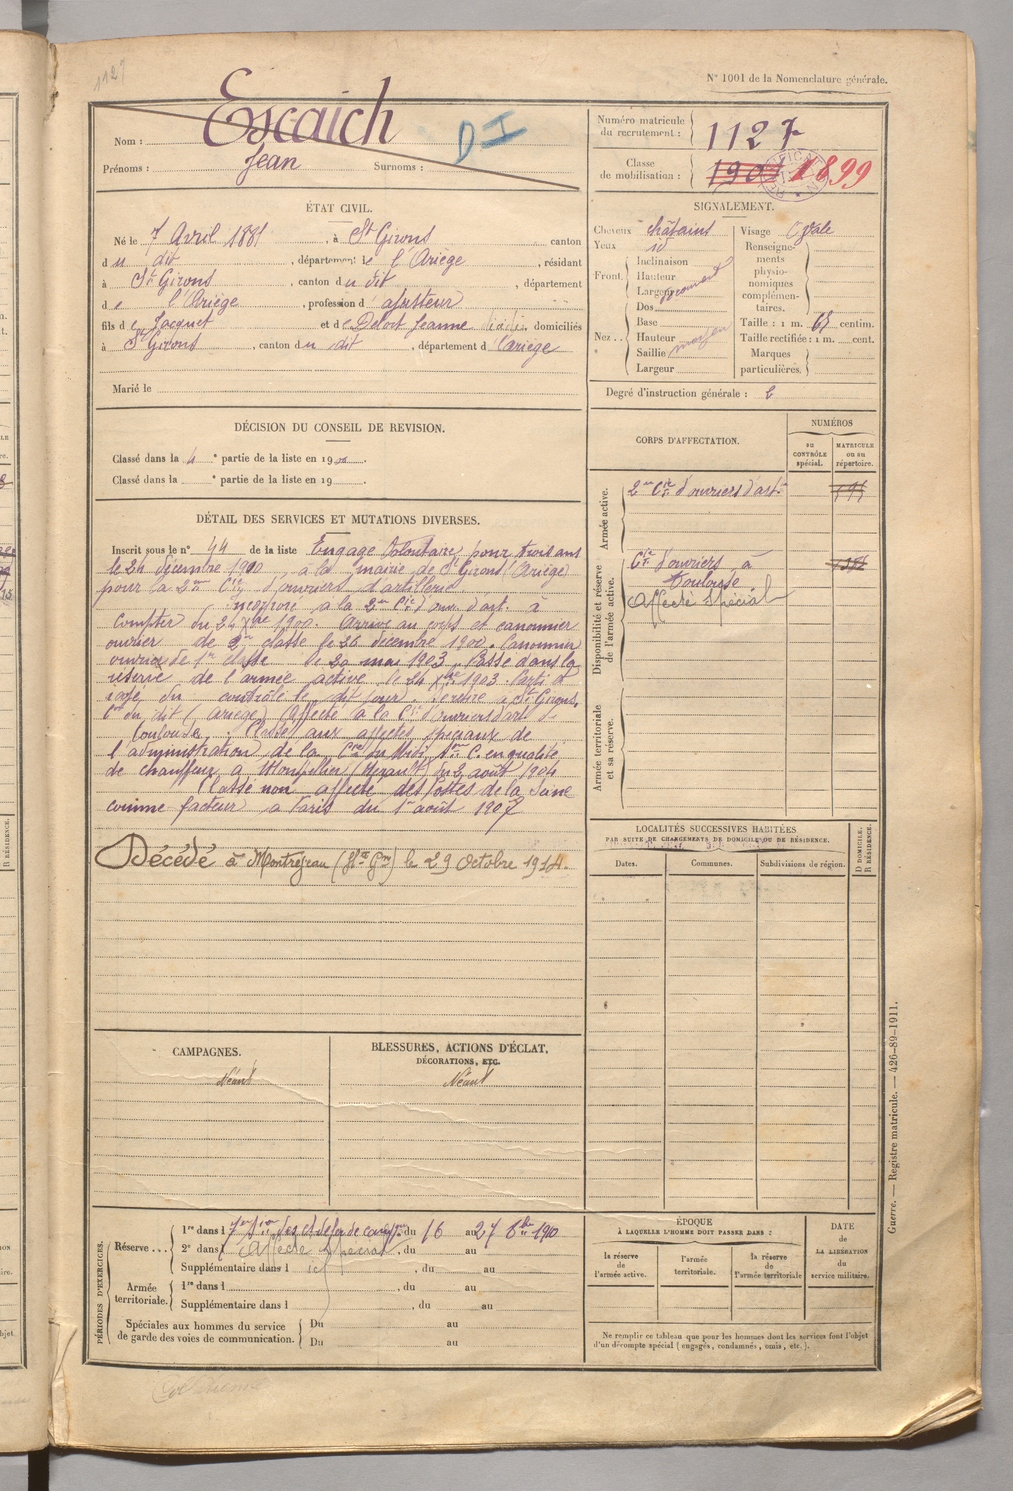 1127
N° 1001 de la Nomenclature générale.
Nom : Escaich
Prénoms : Jean Surnoms :
DI
Numéro matricule du recrutement : 1127
Classe de mobilisation : 1901 1899
ÉTAT CIVIL.
Né le 7 Avril 1881, à St Girons canton
du dit, département de l'Ariège, résidant
à St Girons, canton du dit, département
de l'Ariège, profession d'ajusteur
fils de Jacquet et de Deloit Jeanne, domiciliés
à St Girons, canton du dit, département d Ariège
Marié le
SIGNALEMENT.
Cheveux châtains
Yeux id
Front. Inclinaison
Hauteur
Largeur
Nez. Dos
Base
Hauteur
Saillie moyen
Largeur
Visage Ovale
Renseignements physionomiques complémentaires.
Taille : 1 m. 65 centim.
Taille rectifiée : 1 m. cent.
Marques particulières.
Degré d'instruction générale :
DÉCISION DU CONSEIL DE REVISION.
Classé dans la 4e partie de la liste en 19
Classé dans la e partie de la liste en 19
CORPS D'AFFECTATION.
NUMÉROS
au CONTRÔLE spécial.
MATRICULE ou au répertoire.
Armée active.
2me Cie d'ouvriers d'art.
Disponibilité et réserve de l'armée active.
Cie d'ouvriers à
Toulouse
Affecté Spécial
Armée territoriale et sa réserve.
DÉTAIL DES SERVICES ET MUTATIONS DIVERSES.
Inscrit sous le n° 44 de la liste Engagé Volontaire pour trois ans
le 24 décembre 1900 à la mairie de St Girons (Ariège)
pour la 2me Cie d'ouvriers d'artillerie.
Incorporé à la 2me Cie d'ouv. d'art. à
compter du 24 Xbre 1900. Arrivé au corps et canonnier
ouvrier de 2me classe le 26 décembre 1900. Canonnier
ouvrier de 1re classe le 20 mai 1903. Passé dans la
réserve de l'armée active le 24 Xbre 1903. Parti et
rayé du contrôle le dit jour. Se retire à St Girons,
con du dit (Ariège) Affecté à la Cie d'ouvriers d'art. de
Toulouse. Classé aux affectés spéciaux de
l'administration de la Cie du Midi, en qualité
de chauffeur à Montpellier (Hérault) du 2 août 1904
Classé non affecté des Postes de la Seine
comme facteur à Paris du 1er août 1907
Décédé à Montrejeau (Hte Gne) le 29 Octobre 1914.
LOCALITÉS SUCCESSIVES HABITÉES
PAR SUITE DE CHANGEMENTS DE DOMICILE OU DE RÉSIDENCE.
Dates. Communes. Subdivisions de région.
D DOMICILE. R RÉSIDENCE.
CAMPAGNES.
Néant
BLESSURES, ACTIONS D'ÉCLAT,
DÉCORATIONS, ETC.
Néant
PÉRIODES D'EXERCICES.
Réserve... 1re dans l, du 16 au 27 8bre 1910
2e dans l Affecté Spécial, du au
Supplémentaire dans l, du au
Armée territoriale. 1re dans l, du au
Supplémentaire dans l, du au
Spéciales aux hommes du service de garde des voies de communication. Du au
Du au
ÉPOQUE
À LAQUELLE L'HOMME DOIT PASSER DANS :
la réserve de l'armée active.
l'armée territoriale.
la réserve de l'armée territoriale
DATE de LA LIBÉRATION du service militaire.
Ne remplir ce tableau que pour les hommes dont les services font l'objet
d'un décompte spécial (engagés, condamnés, omis, etc.).
Guerre. — Registre matricule. — 426-89-1911.